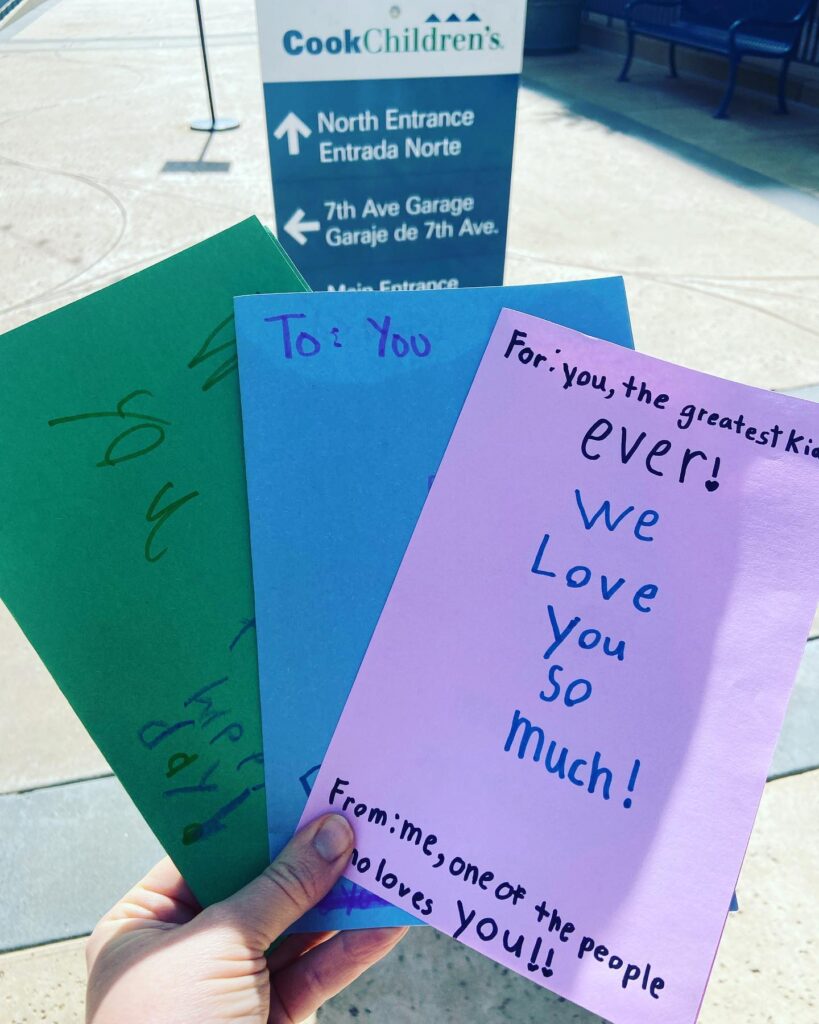 CookChildren's.
North Entrance
Entrada Norte
7th Ave Garage
Garaje de 7th Ave.
Main Entrance
To: You
For: you, the greatest
ever!
We
Love
You
so
much!
From: me, one of the people
loves you!!